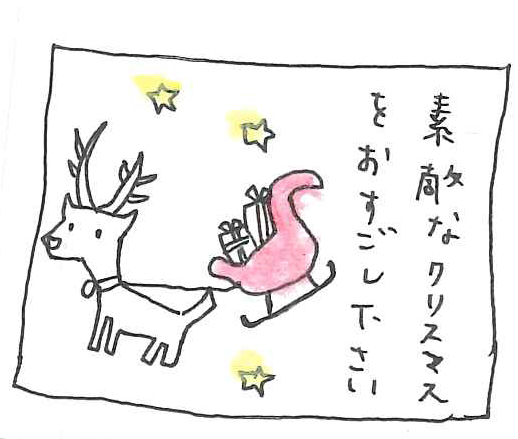 素敵なクリスマス
をおすごし下さい